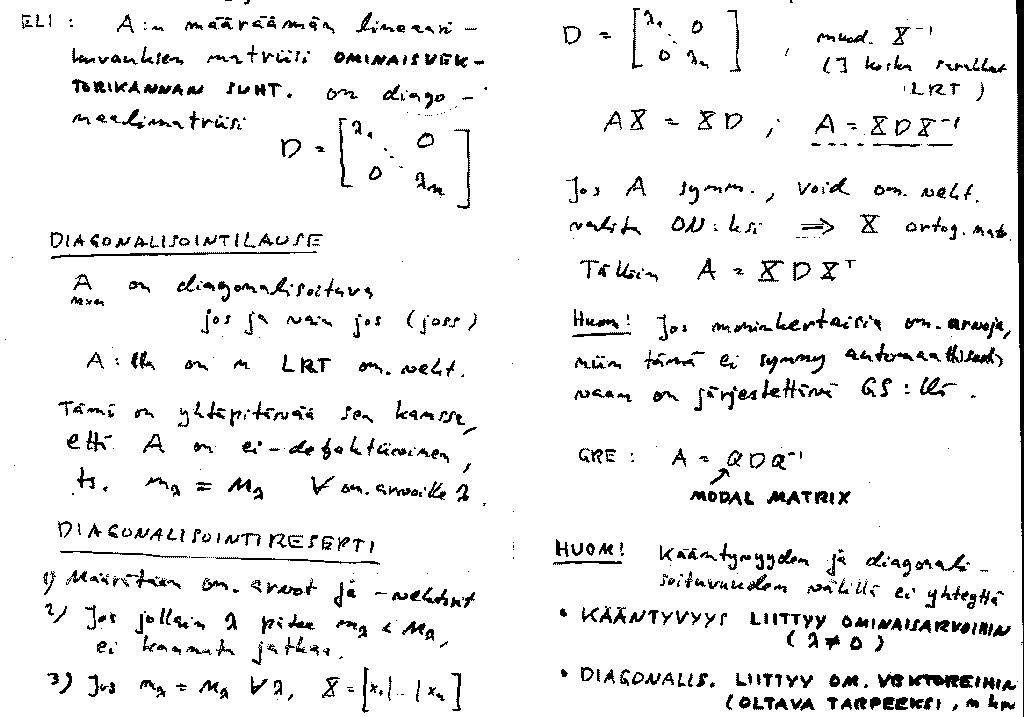 ELI : A:n määräämän lineaari-
kuvauksen matriisi OMINAISVEK-
TORIKANNAN SUHT. on diago-
naalimatriisi
D = [λ₁ 0
0 λₙ]
DIAGONALISOINTILAUSE
A on diagonalisoituva
nxn
jos ja vain jos (joss)
A:lla on n LRT om.vekt.
Tämä on yhtäpitävää sen kanssa,
että A on ei-defektiivinen,
ts. m_λ = M_λ ∀ om.arvoille λ.
DIAGONALISOINTIRESEPTI
1) Määrätään om.arvot ja -vektorit
2) Jos jollain λ pätee m_λ < M_λ,
ei kannata jatkaa.
3) Jos m_λ = M_λ ∀ λ, X = [x₁|...|xₙ]
D = [λ₁ 0
0 λₙ] , muod. X⁻¹
(∃ koska sarakkeet
LRT)
AX = XD ; A = XDX⁻¹
Jos A symm., void om.vekt.
valita ON:ksi ⟹ X ortog.matr.
Tällöin A = XDXᵀ
Huom! Jos moninkertaisia om.arvoja,
niin tämä ei synny automaattisesti,
vaan on järjestettävä GS:llä.
GRE : A = QDQ⁻¹
MODAL MATRIX
HUOM! Kääntyvyyden ja diagonali-
soituvuuden välillä ei yhteyttä
• KÄÄNTYVYYS LIITTYY OMINAISARVOIHIN
(λ ≠ 0)
• DIAGONALIS. LIITTYY OM. VEKTOREIHIN
(OLTAVA TARPEEKSI, n kpl